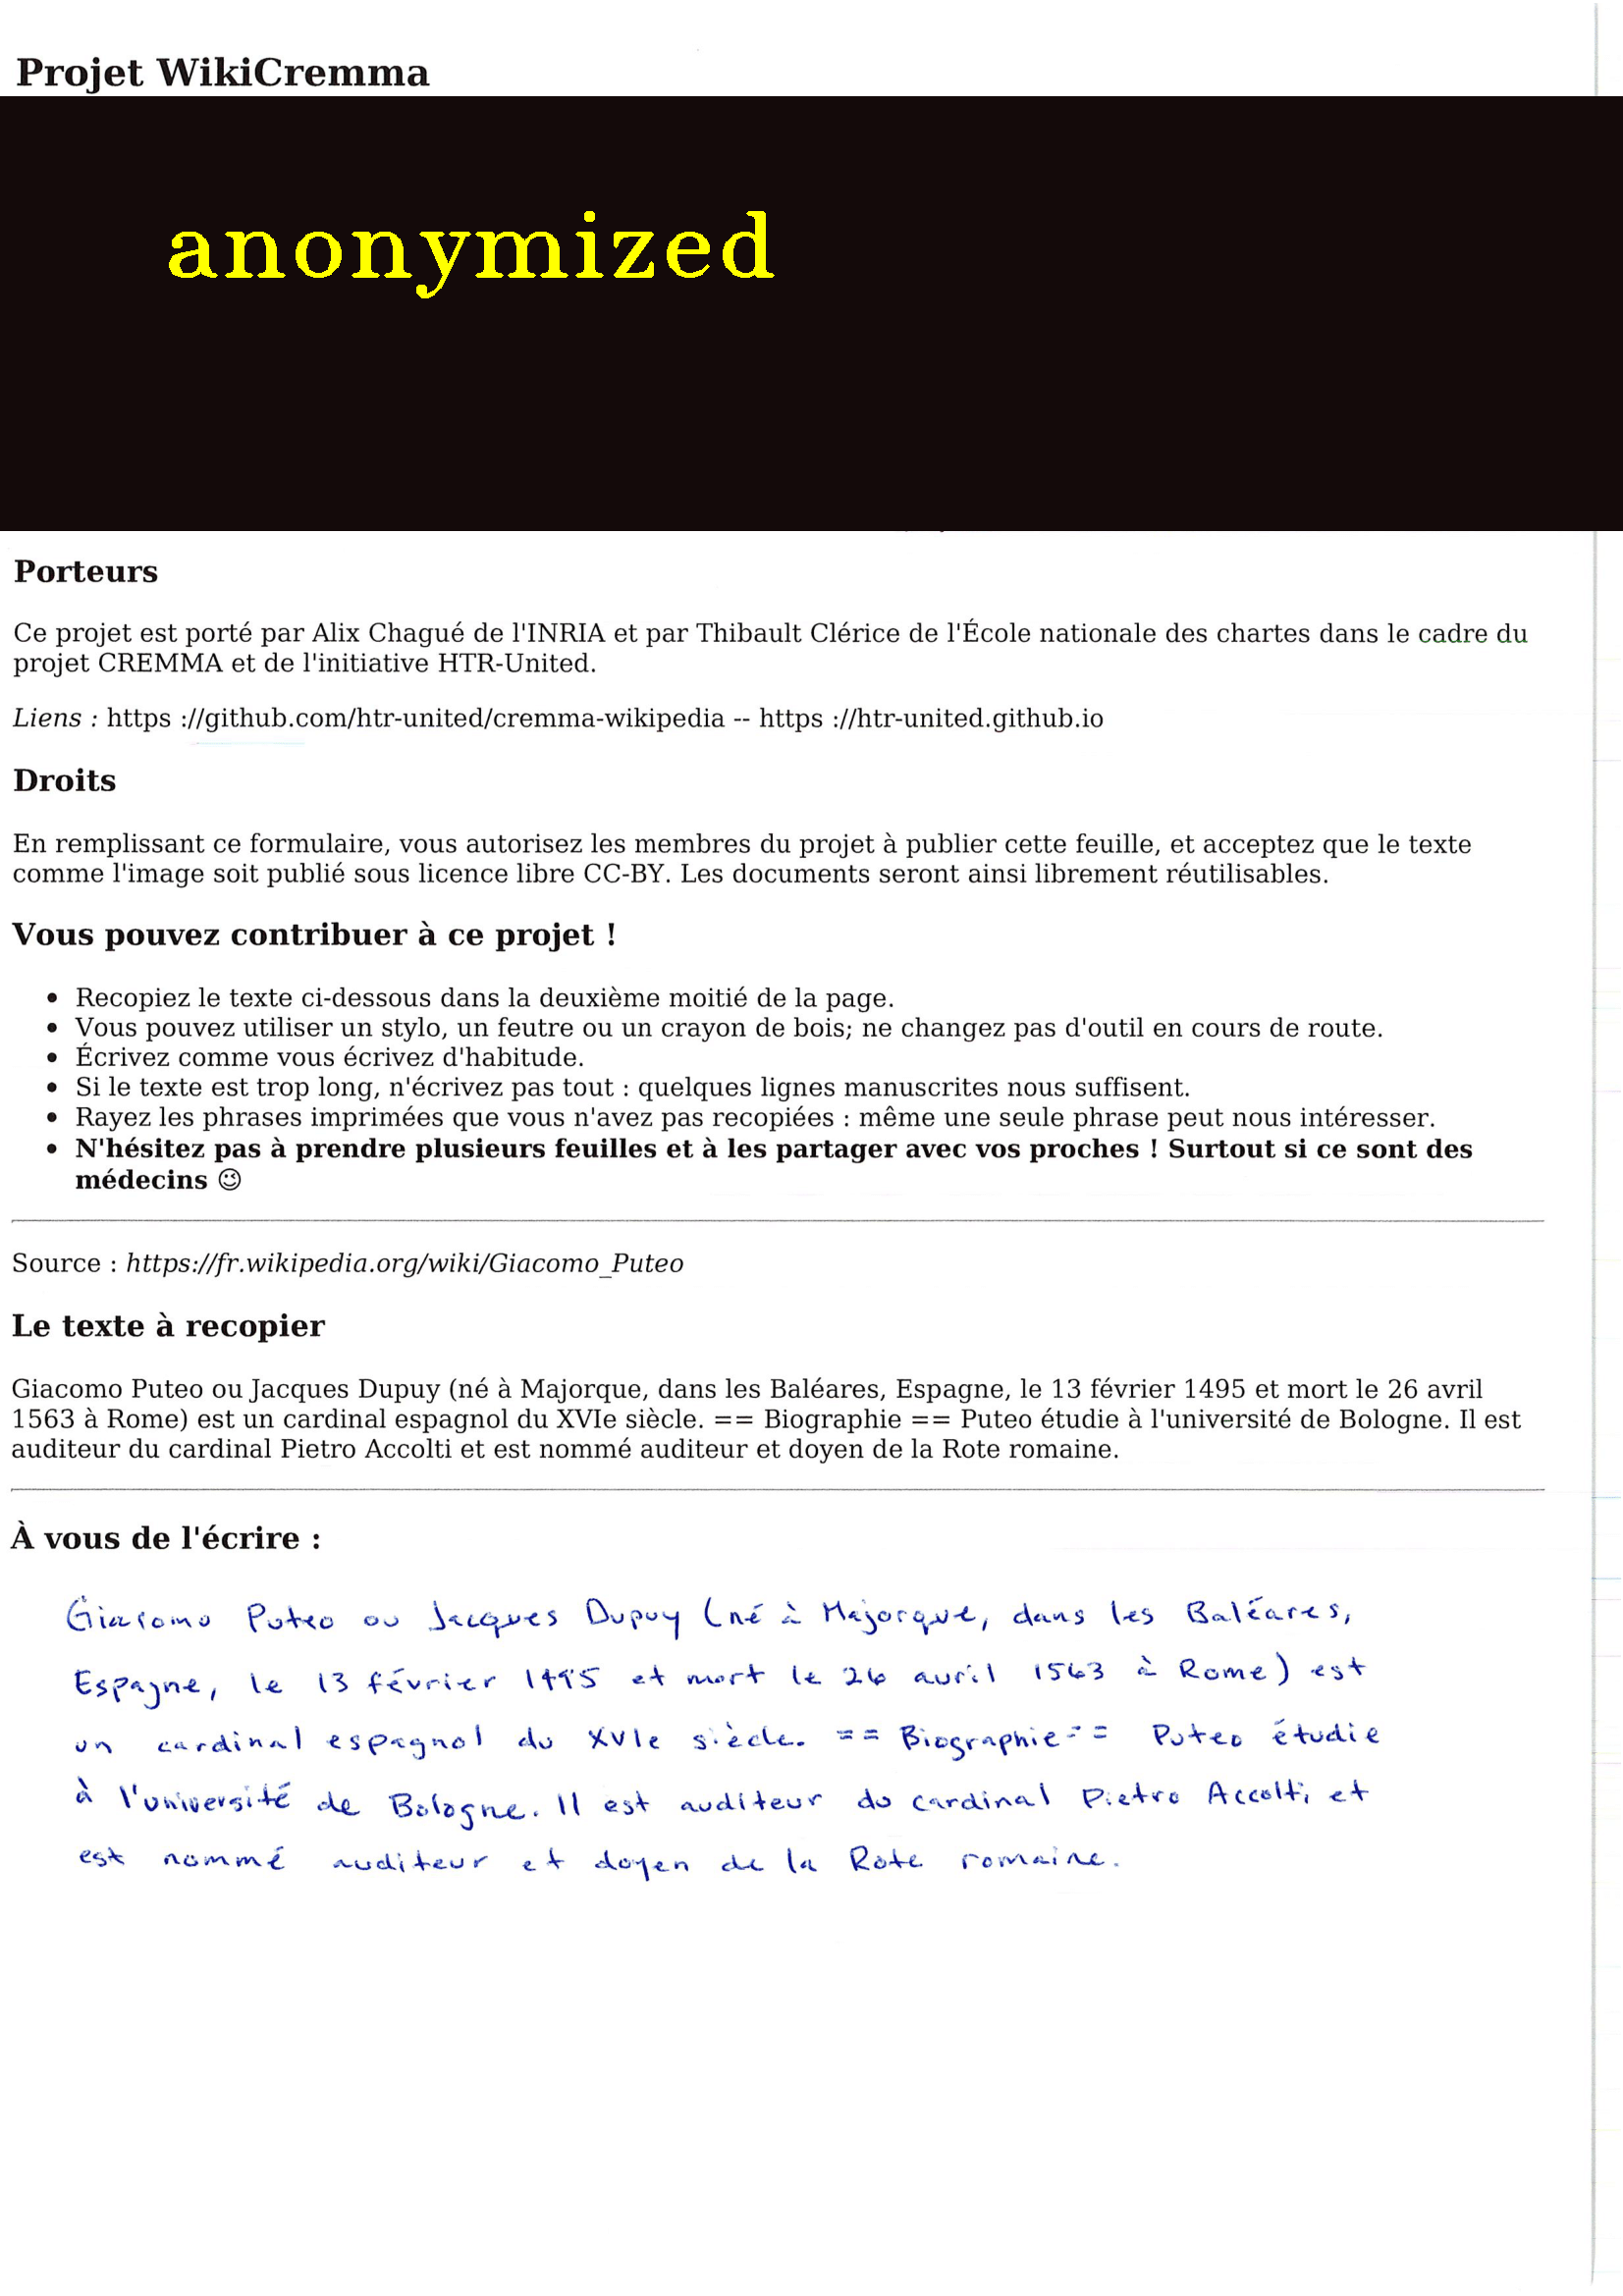 Projet WikiCremma
anonymized
Porteurs
Ce projet est porté par Alix Chagué de l'INRIA et par Thibault Clérice de l'École nationale des chartes dans le cadre du
projet CREMMA et de l'initiative HTR-United.
Liens : https ://github.com/htr-united/cremma-wikipedia -- https ://htr-united.github.io
Droits
En remplissant ce formulaire, vous autorisez les membres du projet à publier cette feuille, et acceptez que le texte
comme l'image soit publié sous licence libre CC-BY. Les documents seront ainsi librement réutilisables.
Vous pouvez contribuer à ce projet !
• Recopiez le texte ci-dessous dans la deuxième moitié de la page.
• Vous pouvez utiliser un stylo, un feutre ou un crayon de bois; ne changez pas d'outil en cours de route.
• Écrivez comme vous écrivez d'habitude.
• Si le texte est trop long, n'écrivez pas tout : quelques lignes manuscrites nous suffisent.
• Rayez les phrases imprimées que vous n'avez pas recopiées : même une seule phrase peut nous intéresser.
• N'hésitez pas à prendre plusieurs feuilles et à les partager avec vos proches ! Surtout si ce sont des
médecins 😉
Source : https://fr.wikipedia.org/wiki/Giacomo_Puteo
Le texte à recopier
Giacomo Puteo ou Jacques Dupuy (né à Majorque, dans les Baléares, Espagne, le 13 février 1495 et mort le 26 avril
1563 à Rome) est un cardinal espagnol du XVIe siècle. == Biographie == Puteo étudie à l'université de Bologne. Il est
auditeur du cardinal Pietro Accolti et est nommé auditeur et doyen de la Rote romaine.
À vous de l'écrire :
Giacomo Puteo ou Jacques Dupuy (né à Majorque, dans les Baléares,
Espagne, le 13 février 1495 et mort le 26 avril 1563 à Rome) est
un cardinal espagnol du XVIe siècle. == Biographie == Puteo étudie
à l'université de Bologne. Il est auditeur du cardinal Pietro Accolti et
est nommé auditeur et doyen de la Rote romaine.